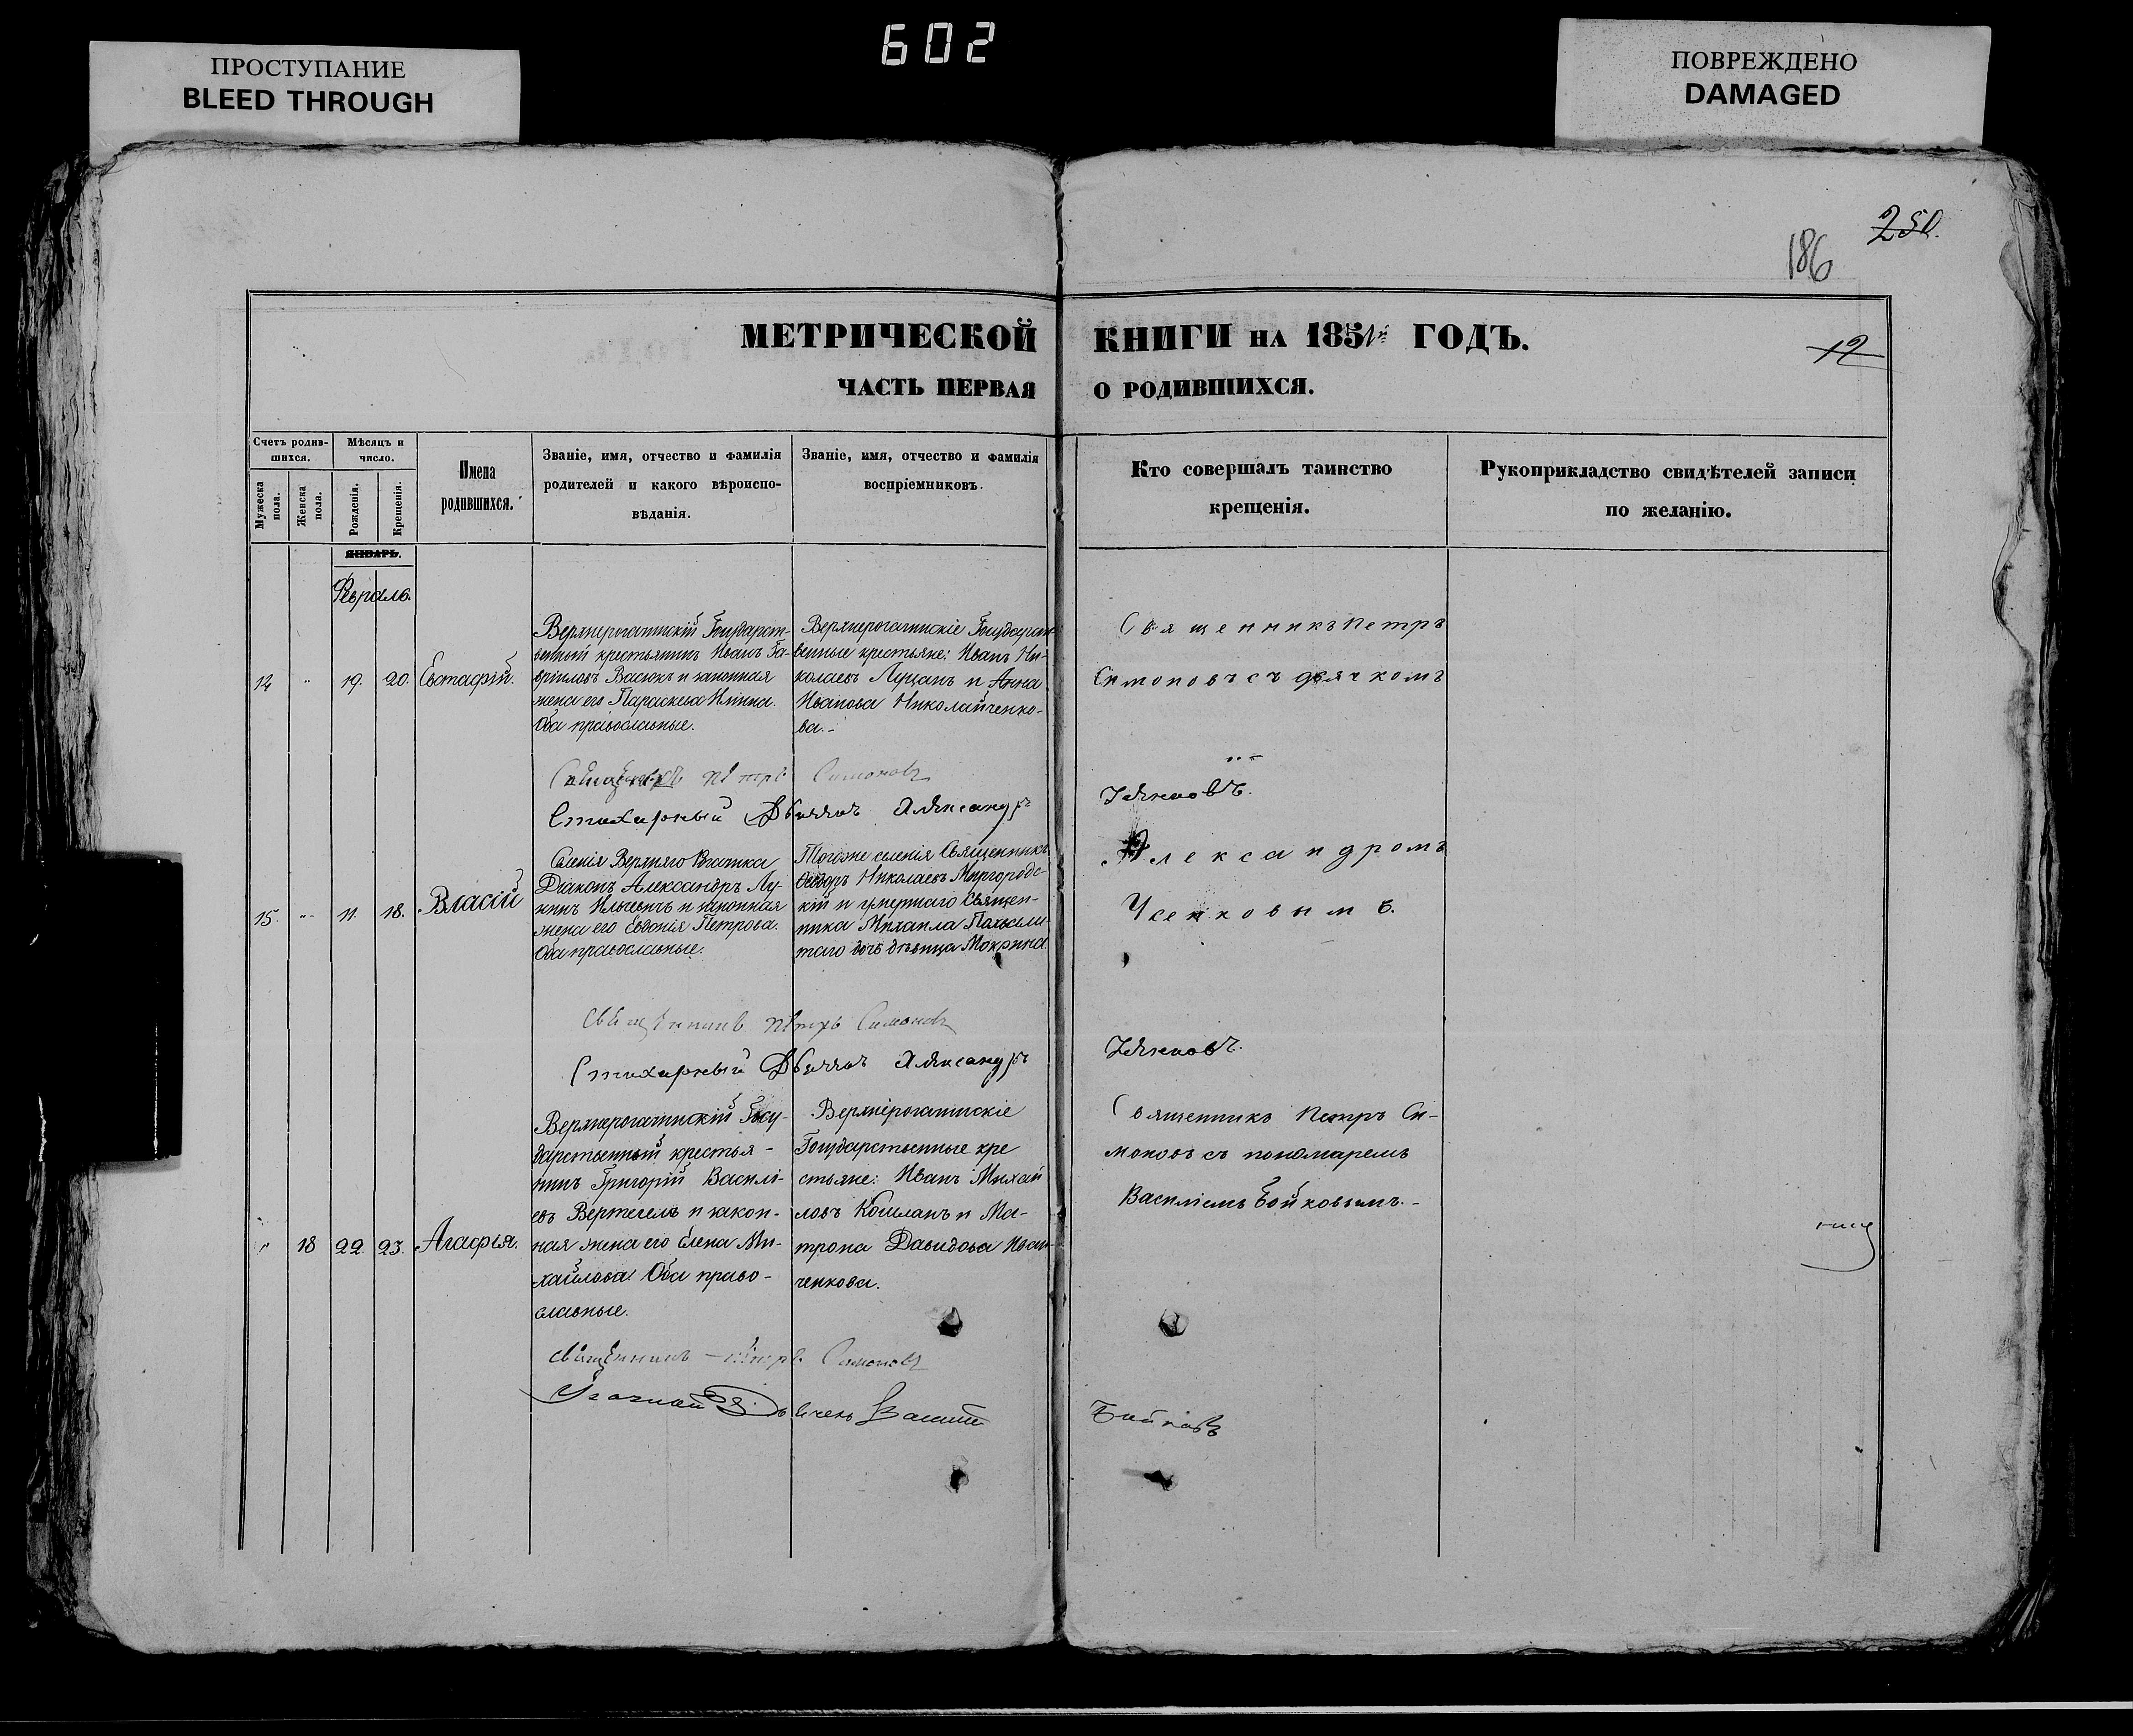 602
ПРОСТУПАНИЕ
BLEED THROUGH
ПОВРЕЖДЕНО
DAMAGED
250.
186
МЕТРИЧЕСКОЙ КНИГИ НА 1851й ГОДЪ.
12
ЧАСТЬ ПЕРВАЯ О РОДИВШИХСЯ.
Счетъ родив-
шихся.
Мужеска пола.
Женска пола.
Мѣсяцъ и
число.
Рожденія.
Крещенія.
Имена
родившихся.
Званіе, имя, отчество и фамилія
родителей и какого вѣроиспо-
вѣданія.
Званіе, имя, отчество и фамилія
воспріемниковъ.
Кто совершалъ таинство
крещенія.
Рукоприкладство свидѣтелей записи
по желанію.
ЯНВАРЬ.
Февраль.
14 " 19. 20. Евстафій.
Верхнерогачикскій Государст-
венный крестьянинъ Иванъ Га-
вріиловъ Васюкъ и законная
жена его Параскева Ильина.
Оба православные.
Верхнерогачикскіе Государст-
венные крестьяне: Иванъ Ни-
колаевъ Луцанъ и Анна
Иванова Николайченко-
ва.-
Священникъ Петръ
Симоновъ съ дьячкомъ
Священникъ Петръ Симоновъ
Стихарный Дьячокъ Александръ Усенковъ.
15. " 11. 18. Власій
Селенія Верхняго Рогачика
Діаконъ Александръ Лу-
кинъ Ильчевичъ и законная
жена его Евдокія Петрова.
Оба православные.
Тогоже селенія Священникъ
Ѳеодоръ Николаевъ Миргородс-
кій и умершаго Священ-
ника Михаила
таго дочь дѣвица Мокрина.
Александромъ
Усенковымъ.
Священникъ Петръ Симоновъ
Стихарный Дьячокъ Александръ Усенковъ.
" 18 22. 23. Агафья.
Верхнерогачикскій Госу-
дарственный крестья-
нинъ Григорій Василі-
евъ Вертегелъ и закон-
ная жена его Елена Ми-
хайлова. Оба право-
славные.
Верхнерогачикскіе
Государственные кре
стьяне: Иванъ Михай
ловъ Кошланъ и Ма-
трона Давидова Иван-
ченкова.
Священникъ Петръ Си-
моновъ съ пономаремъ
Василіемъ Бойковымъ.-
Священникъ Петръ Симоновъ
Василій Бойковъ